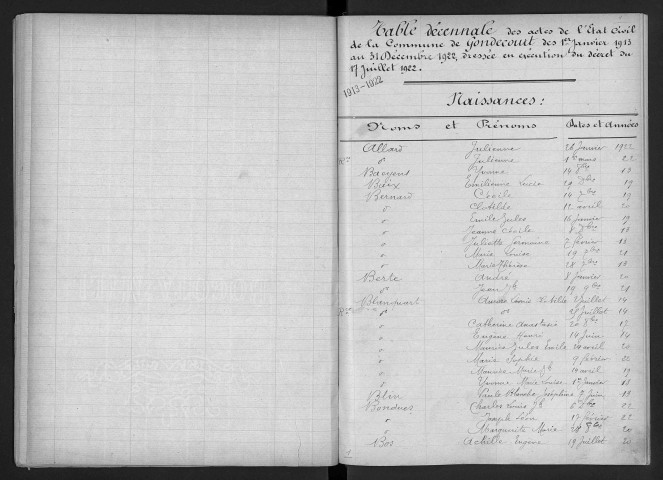 Table décennale des actes de l'Etat Civil
de la Commune de Gondecourt des 1er Janvier 1913
au 31 Décembre 1922, dressée en exécution du décret du
17 Juillet 1922.
1913-1922
Naissances:
Noms et Prénoms Dates et Années
Allard Julienne 26 Janvier 1922
Ron d° Julienne 1er mars 22
Baeyens Yvonne 14 13
Emilienne Luisa 29 19
Bernard Cécile 14 7bre 19
d° Clotilde 12 avril 20
d° Emile Jules 16 Janvier 19
d° Jeanne Cécile 8 13
d° Juliette Germaine 7 février 13
d° Marie Louise 19 21
d° Marie Thérèse 28 13
Berte André 8 Janvier 20
d° Jean Bte 19 9bre 21
Blanquart 2 Juillet 14
d° d° 29 Juillet 14
d° Catherine Anastasie 20 8bre 17
d° Eugène Henri 14 Juin 14
d° Maurice Jules Emile 24 avril 20
d° Marie Sophie 9 février 22
d° Maurice Marie Jh 14 avril 19
d° Yvonne Marie Louise 1er Janvier 13
Blin Paule Blanche Joséphine 7 Juin 13
Bondues Charles Louis Jh 6 8bre 22
d° Joseph Léon 17 février 22
d° Marguerite Marie 29 20
Bos Achille Eugène 19 Juillet 20
1